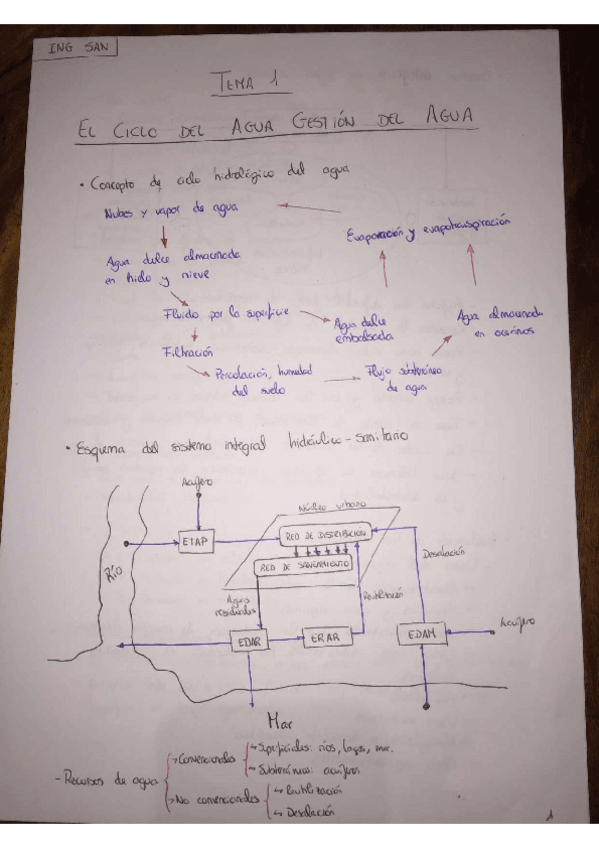 ING SAN
TEMA 1
EL CICLO DEL AGUA GESTIÓN DEL AGUA
• Concepto de ciclo hidrológico del agua
Nubes y vapor de agua
Evaporación y evapotranspiración
Agua dulce almacenada
en hielo y nieve
Fluido por la superficie
Agua dulce
embalsada
Agua almacenada
en océanos
Filtración
Percolación, humedad
del suelo
Flujo subterráneo
de agua
• Esquema del sistema integral hidráulico-sanitario
Acuífero
Núcleo urbano
ETAP
RED DE DISTRIBUCIÓN
RED DE SANEAMIENTO
Desalación
Río
Aguas
residuales
Reutilización
EDAR
ERAR
EDAM
Acuífero
Mar
- Recursos de agua
→ Convencionales
→ Superficiales: ríos, lagos, mar.
→ Subterráneas: acuíferos
→ No convencionales
→ Reutilización
→ Desalación
1